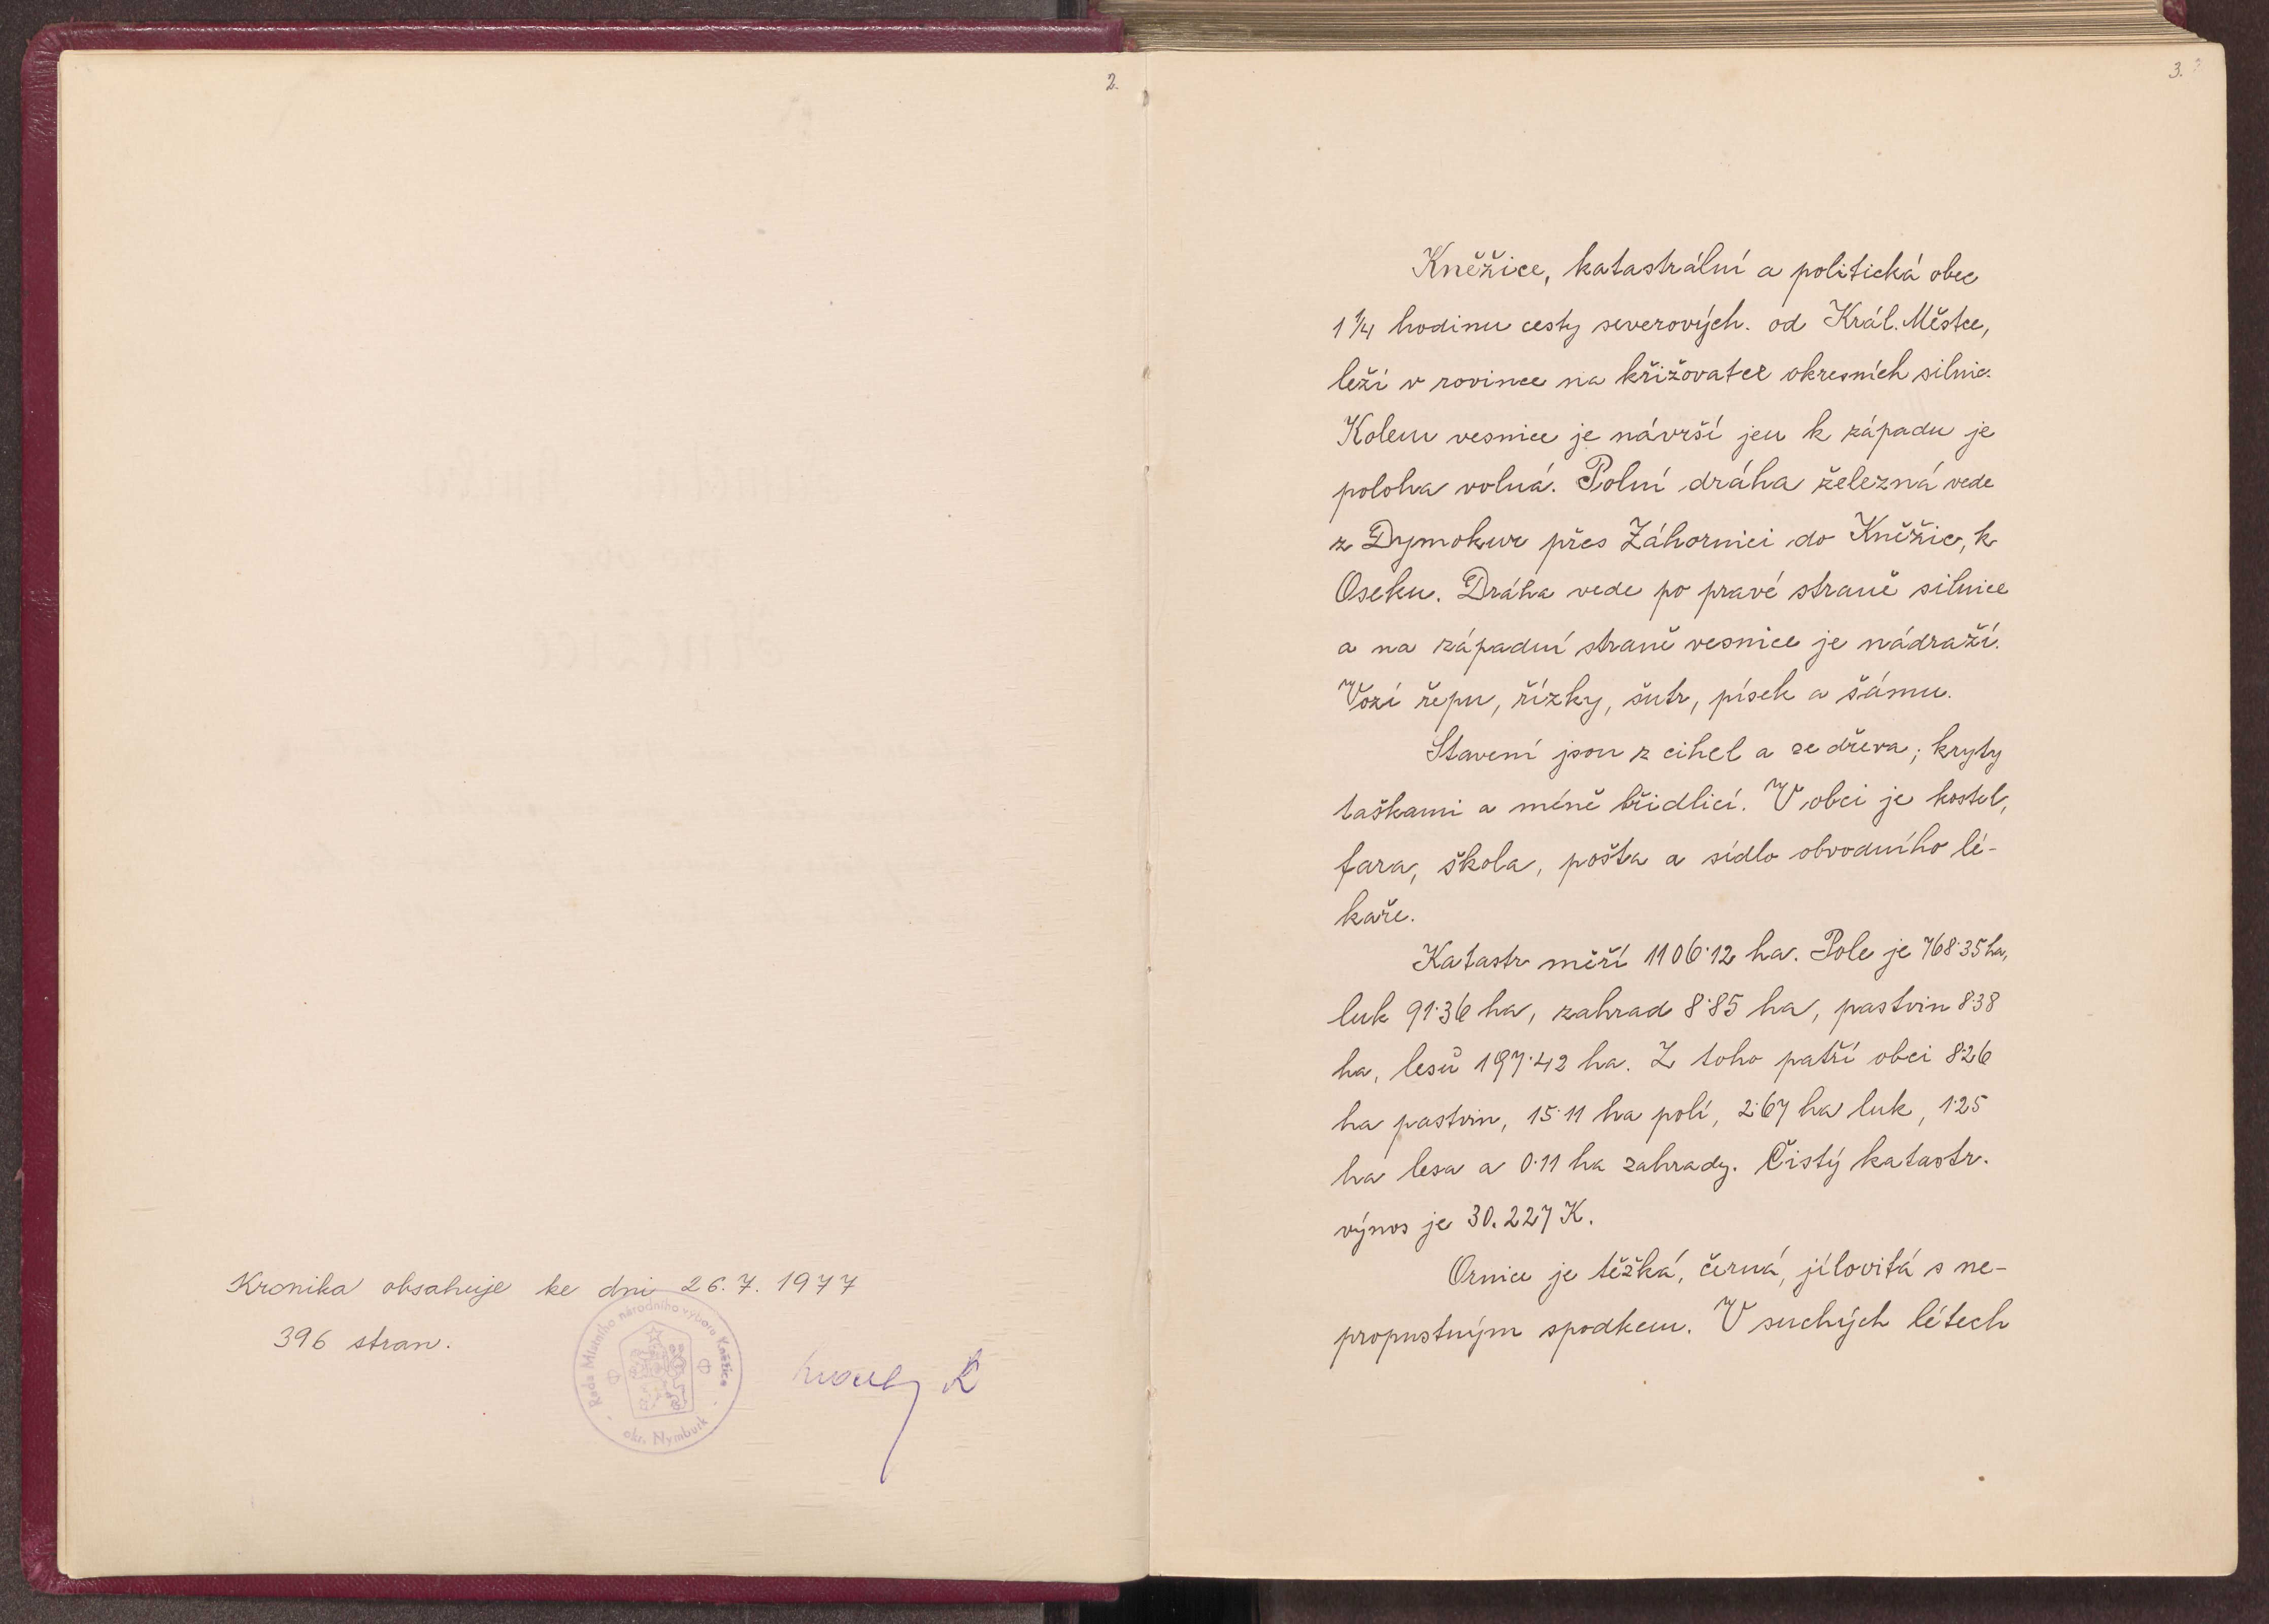 2.
Kronika obsahuje ke dni 26. 7. 1977
396 stran.
Rada Místního národního výboru Kněžice
okr. Nymburk
3.
Kněžice, katastrální a politická obec
1 1/4 hodinu cesty severových. od Král. Městce,
leží v rovince na křižovatce okresních silnic.
Kolem vesnice je návrší jen k západu je
poloha volná. Polní dráha železná vede
z Dymokur přes Záhornici do Kněžic, k
Oseku. Dráha vede po pravé straně silnice
a na západní straně vesnice je nádraží.
Vozí řepu, řízky, šutr, písek a šámu.
Stavení jsou z cihel a ze dřeva; kryty
taškami a méně břidlicí. V obci je kostel,
fara, škola, pošta a sídlo obvodního lé-
kaře.
Katastr měří 1106·12 ha. Pole je 768·35 ha,
luk 91·36 ha, zahrad 8·85 ha, pastvin 8·38
ha, lesů 197·42 ha. Z toho patří obci 8·26
ha pastvin, 15·11 ha polí, 2·67 ha luk, 1·25
ha lesa a 0·11 ha zahrady. Čistý katastr.
výnos je 30.227 K.
Ornice je těžká, černá, jílovitá s ne-
propustným spodkem. V suchých létech